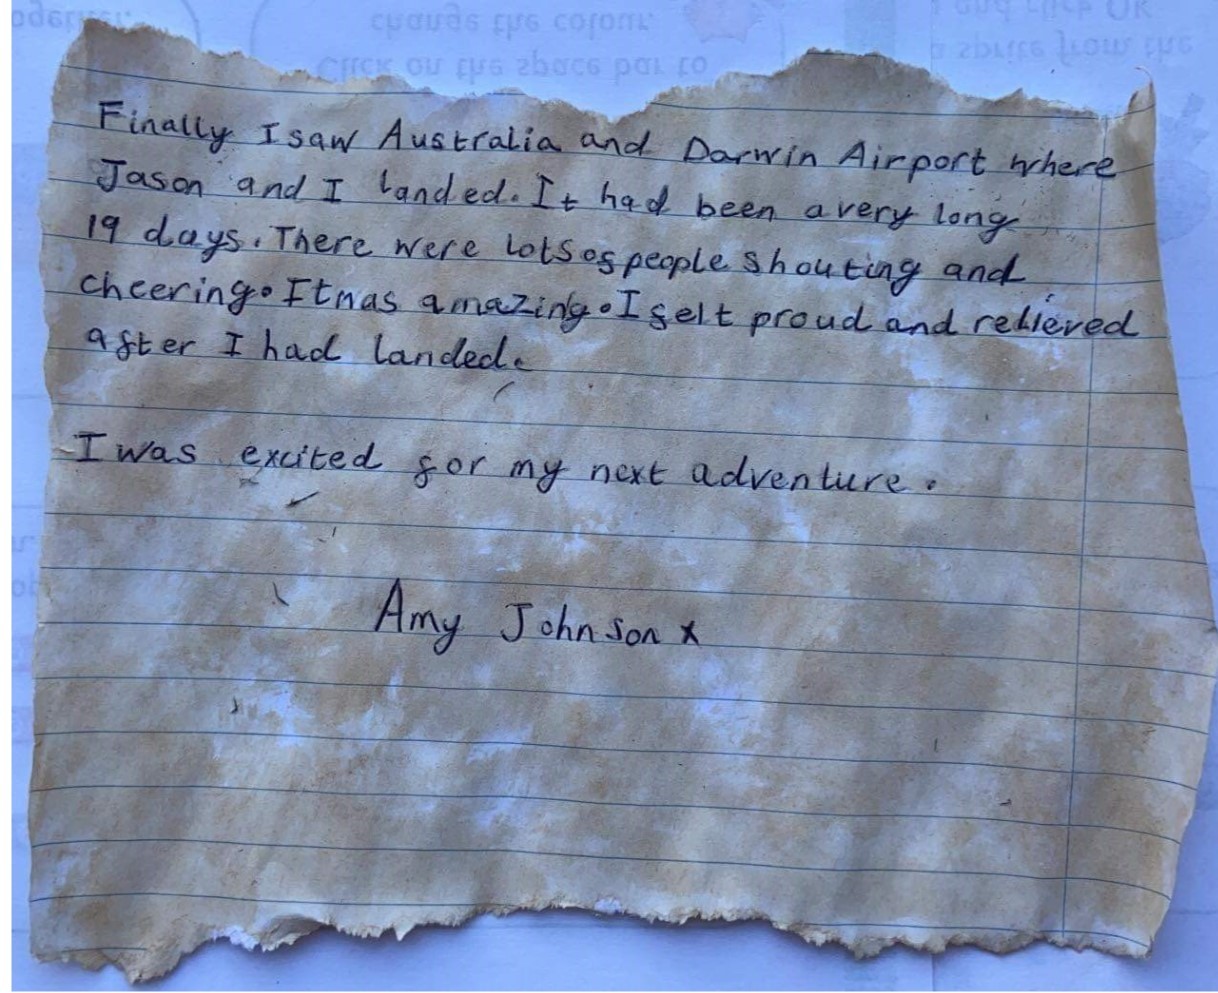 ogether.
change the colour.
Click on the space bar to
and click OK
a sprite from the
Finally I saw Australia and Darwin Airport where
Jason and I landed. It had been a very long
19 days. There were lots of people shouting and
cheering. It was amazing. I felt proud and relieved
after I had landed.
I was excited for my next adventure.
Amy Johnson x